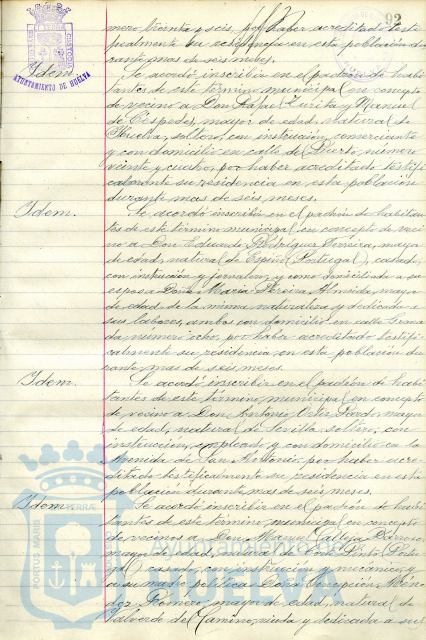 92
AYUNTAMIENTO DE HUELVA
mero treinta y seis, por haber acreditado testi
su residencia en esta población du
rante mas de seis meses.
Idem. Se acordó inscribir en el padrón de habi
tantes de este término municipal en concepto
de vecino a Don Rafael Zurita y Manuel
de Céspedes, mayor de edad, natural de
Huelva, soltero, con instrucción, comerciante
y con domicilio en calle del Puerto, número
veinte y cuatro, por haber acreditado testifi
calmente su residencia en esta población
durante mas de seis meses.
Idem. Se acordó inscribir en el padrón de habitan
tes de este término municipal en concepto de veci
no a Don Eduardo Rodriguez Ferreira, mayor
de edad, natural de (Portugal), casado,
con instrucción y jornalero, y como domiciliada a su
esposa Doña Maria Pereira Almeida, mayor
de edad, de la misma naturaleza y dedicada a
sus labores, ambos con domicilio en calle Grana
da número ocho, por haber acreditado testifi
calmente su residencia en esta población du
rante mas de seis meses.
Idem. Se acordó inscribir en el padrón de habi
tantes de este término municipal en concepto
de vecino a Don Antonio Ortiz Pardo, mayor
de edad, natural de Sevilla, soltero, con
instrucción, empleado y con domicilio en la
Avenida de San Antonio, por haber acre
ditado testificalmente su residencia en esta
población durante mas de seis meses.
Idem. Se acordó inscribir en el padrón de habi
tantes de este término municipal en concepto
de vecinos a Don Manuel Calleja Barroso,
mayor de edad, natural de Pinto (Portu
gal) casado, con instrucción y mecánico, y
a su madre politica Doña Concepción Mén
dez Romero, mayor de edad, natural de
Valverde del Camino, viuda y dedicada a sus
PORTUS MARIS
Ayuntamiento de
HUELVA